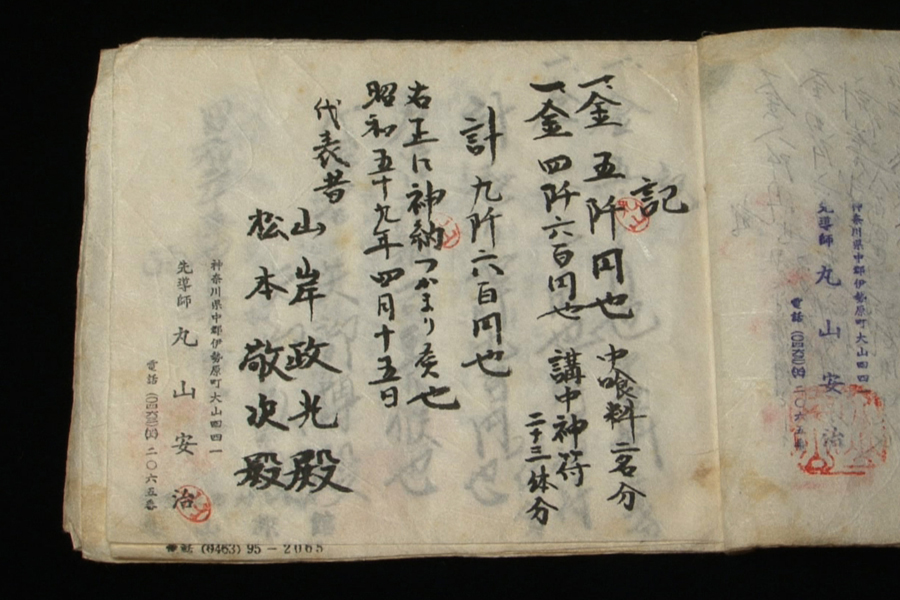 記
一金 五阡円也 中喰料 二名分
一金 四阡六百円也 講中神符
二十三体分
計 九阡六百円也
右正に神納つかまり候也
昭和五十九年四月十五日
代表者
山岸政光殿
松本敬次殿
神奈川県中郡伊勢原町大山四四一
先導師 丸山安治
電話
二〇六五番
電話 (0463) 95-2065
神奈川県中郡伊勢原町大山四四
先導師 丸山安治
電話
二〇六五番